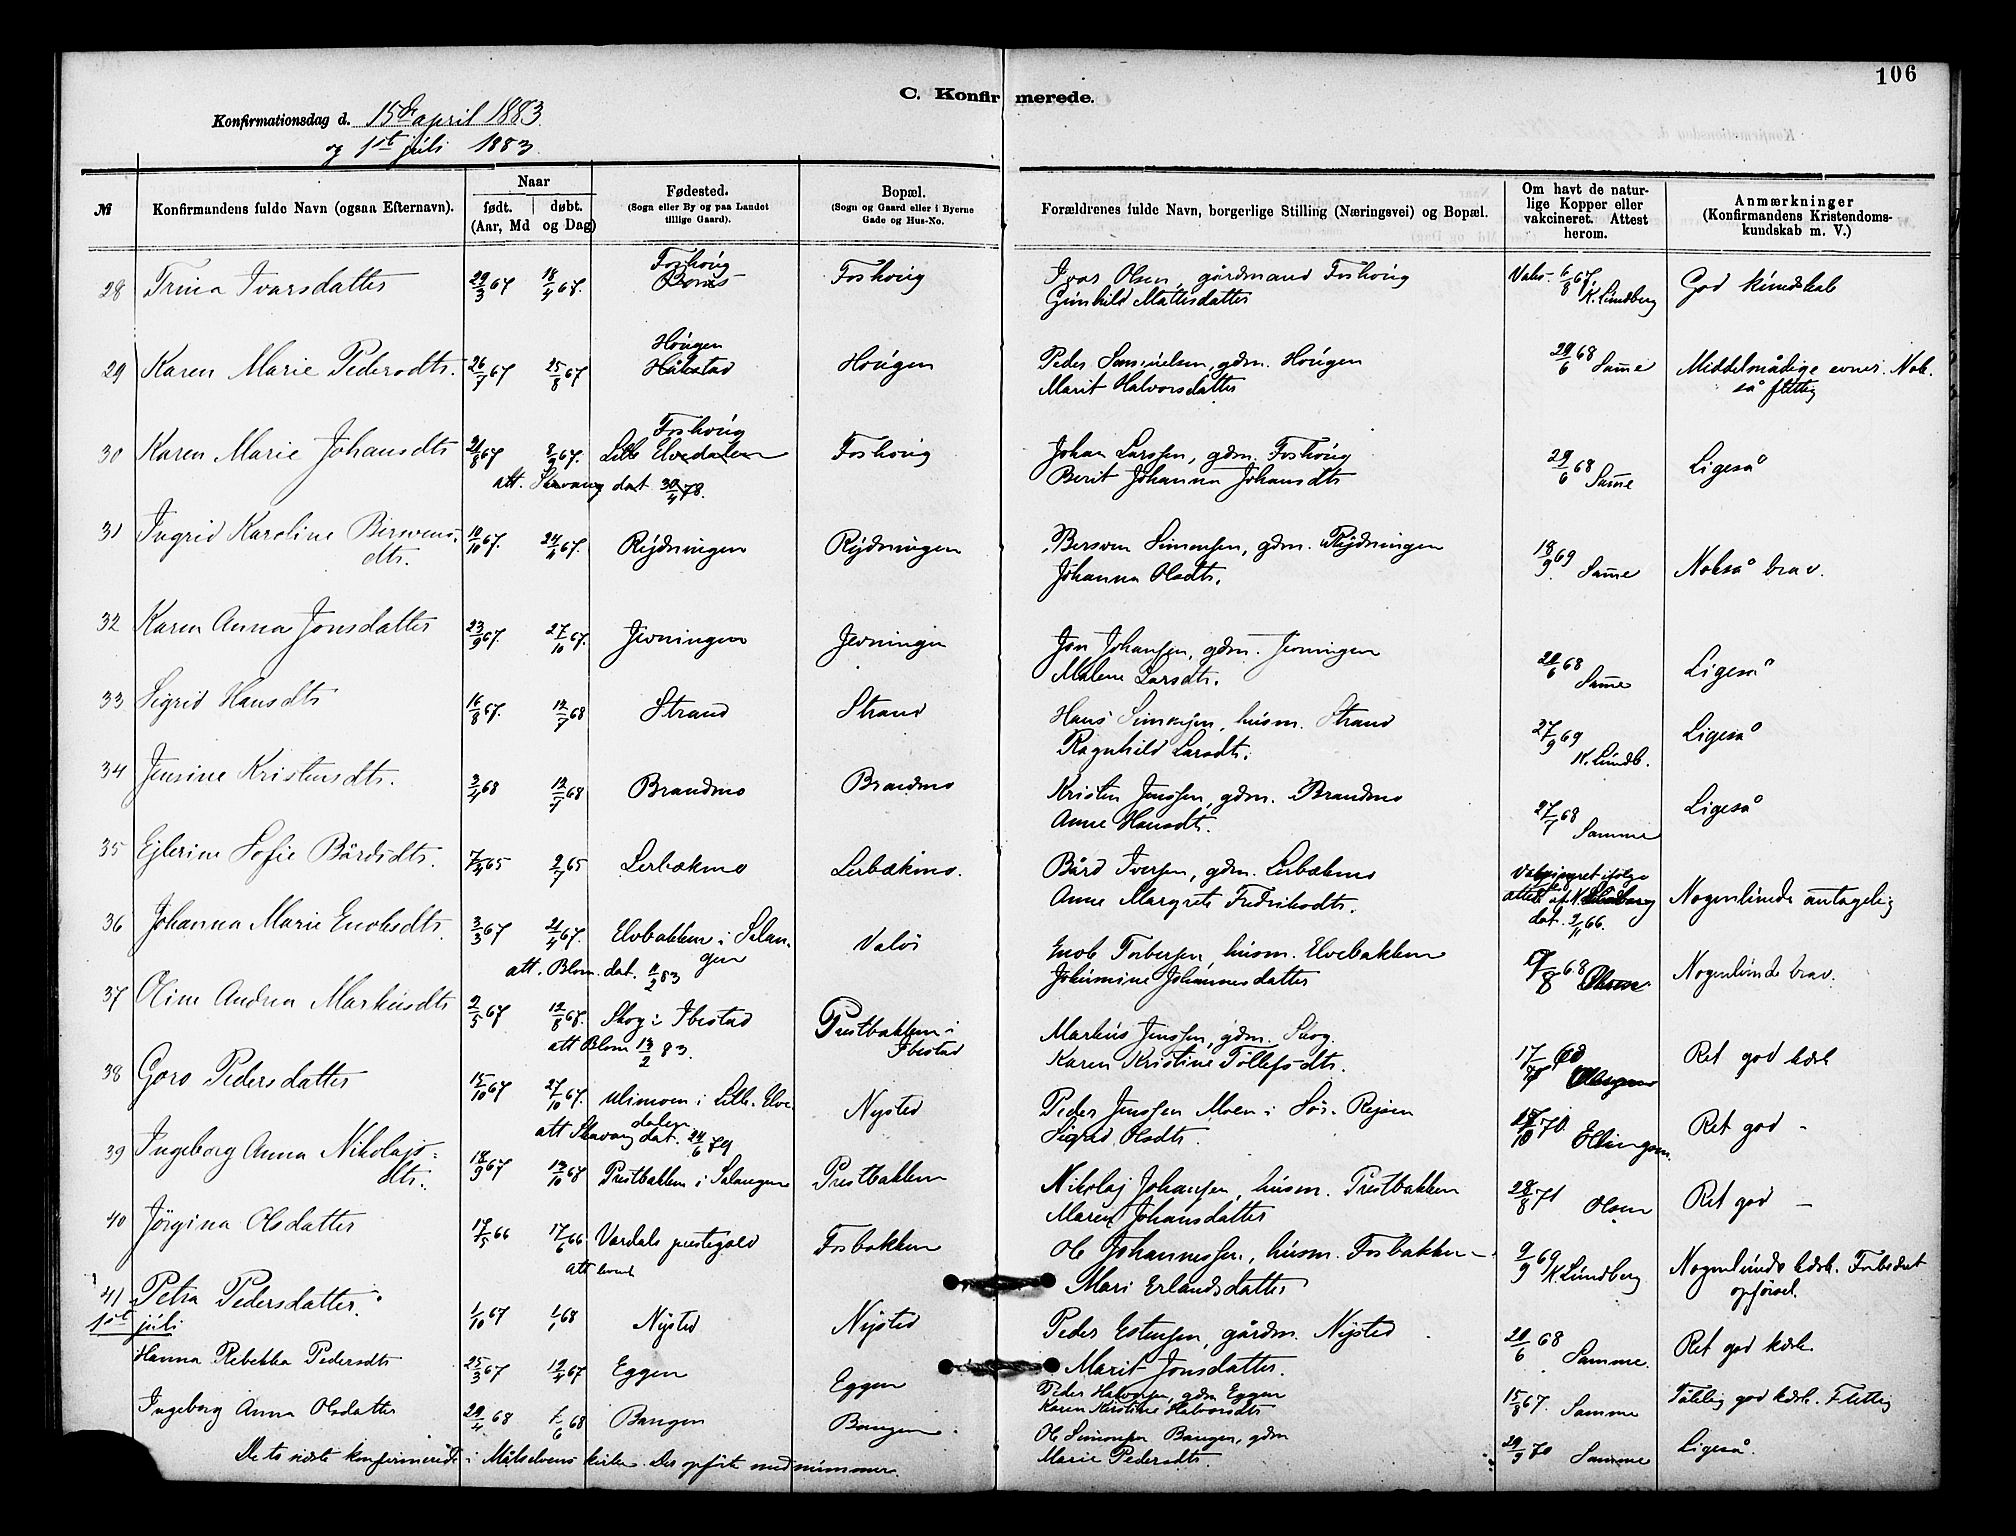 106
C. Konfirmerede.
Konfirmationsdag d. 15de april 1883
og 1st juli 1883.
№ Konfirmandens fulde Navn (ogsaa Efternavn). Naar født. (Aar, Md døbt. og Dag) Fødested. (Sogn eller By og paa Landet tillige Gaard). Bopæl. (Sogn og Gaard eller i Byerne Gade og Hus-No. Forældrenes fulde Navn, borgerlige Stilling (Næringsvei) og Bopæl. Om havt de naturlige Kopper eller vakcineret. Attest herom. Anmærkninger (Konfirmandens Kristendomskundskab m. V.)
28 Trina Ivarsdatter 29/3 67 18/4 67. Foshoug Foshoug Ivar Olsen, gårdmand Foshoug 6/8 67, God kundskab
Gunhild Mattesdatter K. Lundberg
29 Karen Marie Pedersdtr. 26/7 67 25/8 67 Hougen Håkstad Hougen Peder Samuelsen, gdm. Hougen 20/6 68 Samme Middelmådige evner. Nok-
Marit Halvorsdatter så flittig
30 Karen Marie Johansdtr 21/8 67 8/9 67. Foshoug Lille Elvedalen Foshoug Johan Larssen, gdm. Foshoug 29/6 68 Samme Ligeså
att. Skavang dat 30/4 78. Berit Johanna Johansdtr
31 Ingrid Karoline Bersvens- 10/10 67. 24/11 67. Rydningen Rydningen Bersven Simonsen, gdm. Rydningen 18/9 69 Samme Nokså brav.
dtr. Johanna Olsdtr.
32 Karen Anna Jonsdatter 23/9 67. 27/10 67. Jevningen Jevningen Jon Johansen, gdm. Jevningen 20/6 68 Samme Ligeså
Malene Larsdtr.
33 Sigrid Hansdtr 16/8 67. 12/7 68 Strand Strand Hans Simonsen, husm. Strand 27/9 69 Ligeså
Ragnhild Larsdtr. K. Lundb.
34 Jensine Kristensdtr. 3/4 68 12/7 68 Brandmo Brandmo Kristen Jenssen, gdm. Brandmo 27/7 68 Samme Ligeså
Anne Hansdtr.
35 Ejlerine Sofie Bårdsdtr. 7/4 65 2/7 65 Lerbækmo Lerbækmo. Bård Iversen, gdm. Lerbækmo ifølge Nogenlunde antagelig
Anne Margrete Fredriksdtr. attest af K. Lundberg dat. 9/11 66.
36 Johanna Marie Enoksdtr. 3/3 67 21/4 67. Elvebakken i Salangen Valøi Enok Torbersen, husm. Elvebakken Nogenlunde brav.
att. Blom. dat. 11/2 83 Johanna Johannesdatter
37 Oline Andrea Markusdtr 2/5 67 12/8 67. Skog i Ibestad Prestbakken i Ibestad Markus Jenssen, gdm. Skog. Ret god kdsk
att Blom 13/2 83. Karen Kristine Tollefsdtr.
38 Goro Pedersdatter 15/10 67 27/10 67. i Lille-Elvedalen Nysted Peder Jenssen Moen i Sør-Rejsen Ellingsen. Ret god -
att Skavang dat. 24/6 79 Sigrid Olsdtr.
39 Ingeborg Anna Nikolajs- 18/9 67 13/10 67 Prestbakken i Salangen Prestbakken Nikolaj Johansen, husm. Prestbakken 28/8 71 Olsen Ret god -
dtr. Maren Johansdatter
40 Jørgina Olsdatter 17/5 66 17/6 66. Vardals prestegjeld Fosbakken Ole Johannessen, husm. Fosbakken 9/9 69 K. Lundberg Nogenlunde kdsk. Forbedret
Mari Erlandsdatter opførsel.
41 Petra Pedersdatter. 1/10 67 1/1 68 Nysted Nysted Peder Estensen, gårdm. Nysted 20/6 68 Samme. Ret god kdsk.
1st juli Marit Jonsdatter.
Hanna Rebekka Pedersdtr 25/3 67 12/4 67 Eggen Eggen Peder Halvorsen, gdm Eggen 15/8 67. Samme Tålelig god kdsk. Flittig
Karen Kirstine Halvorsdtr
Ingeborg Anna Olsdatter 20/4 68 1/6 68 Bangen Bangen. Ole Simonsen Bangen, gdm 29/9 70 Samme Ligeså.
Marie Pedersdtr.
De to sidste konfirmerede i Målselvens kirke. Der opførte med nummer.